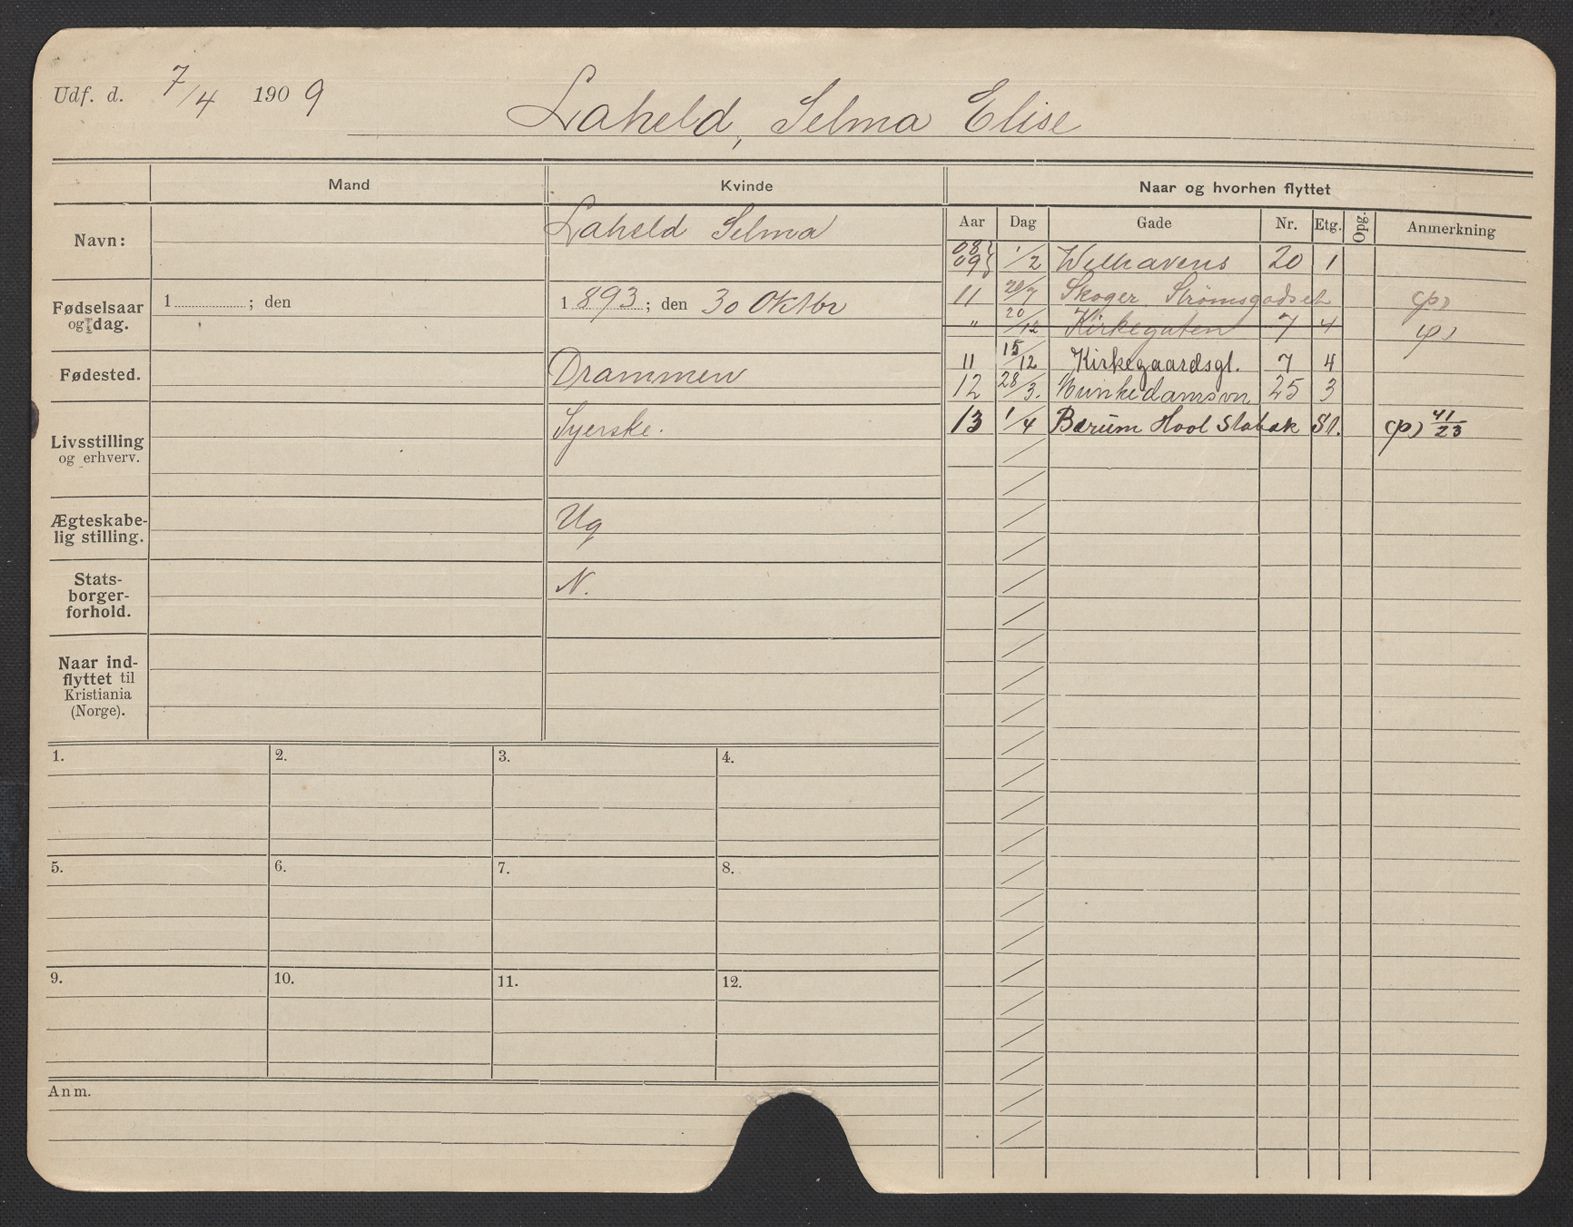 Udf. d. 7/4 1909 Laheld, Selma Elise
Mand Kvinde Naar og hvorhen flyttet
Navn: Laheld Selma
Aar Dag Gade Nr. Etg. Opg. Anmerkning
08/09 1/2 Welhavens 20 1
Fødselsaar og dag. 1 ; den 1893; den 30 Oktbr
11 20/7 Skoger Strømsgodset (p)
" 20/12 Kirkegaten 7 4 (p)
Fødested. Drammen
11 15/12 Kirkegaardsgt. 7 4
12 28/3. Munkedamsvn 25 3
Livsstilling og erhverv. Syerske.
13 1/4 Bærum Hool Stabæk St. (p) 41/23
Ægteskabe-
lig stilling. Ug
Stats-
borger-
forhold. N.
Naar ind-
flyttet til
Kristiania
(Norge).
1. 2. 3. 4.
5. 6. 7. 8.
9. 10. 11. 12.
Anm.